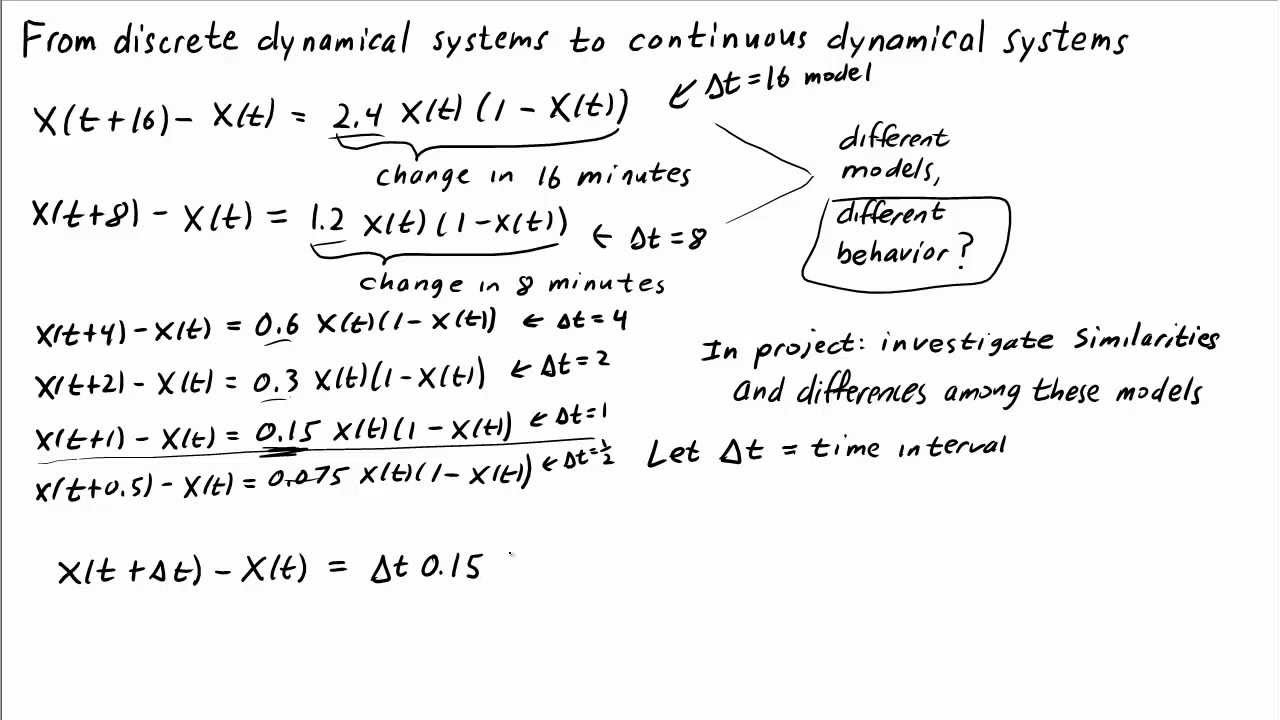 From discrete dynamical systems to continuous dynamical systems
X(t+16) - X(t) = 2.4 X(t) (1 - X(t)) ← Δt = 16 model
change in 16 minutes
X(t+8) - X(t) = 1.2 X(t) (1 - X(t)) ← Δt = 8
change in 8 minutes
different
models,
different
behavior?
X(t+4) - X(t) = 0.6 X(t)(1 - X(t)) ← Δt = 4
X(t+2) - X(t) = 0.3 X(t)(1 - X(t)) ← Δt = 2
X(t+1) - X(t) = 0.15 X(t)(1 - X(t)) ← Δt = 1
X(t+0.5) - X(t) = 0.075 X(t)(1 - X(t)) ← Δt = 1/2
In project: investigate similarities
and differences among these models
Let Δt = time interval
X(t + Δt) - X(t) = Δt 0.15